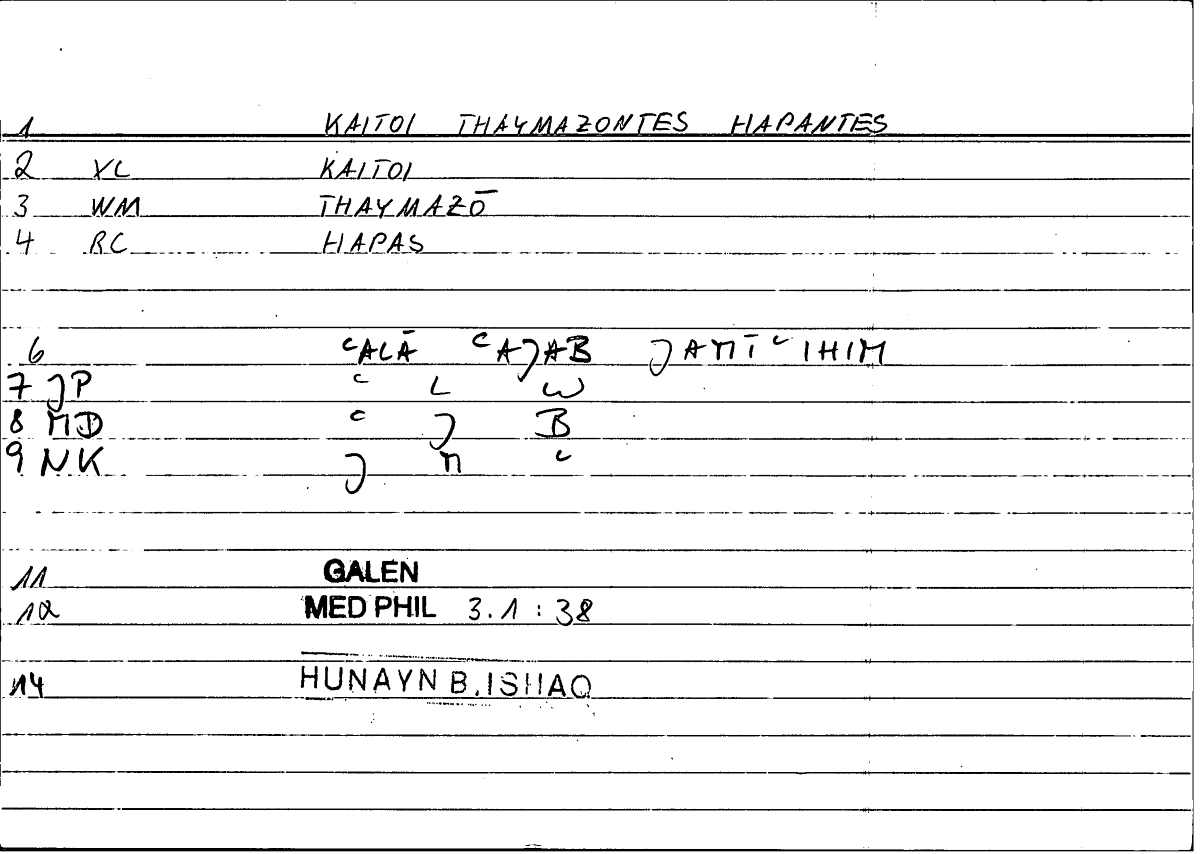 1 KAITOI THAYMAZONTES HAPANTES
2 XL KAITOI
3 WM THAYMAZŌ
4 RC HAPAS
6 ʿALĀ ʿAJAB JAMĪʿIHIM
7 JP ʿ L W
8 MD ʿ J B
9 NK J M ʿ
11 GALEN
12 MED PHIL 3.1 : 38
14 HUNAYN B. ISHAQ